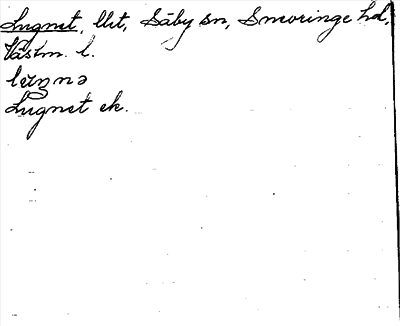 Lugnet, llt, Säby sn, Snoringe hd,
Västm. l.
Lugnet ek.